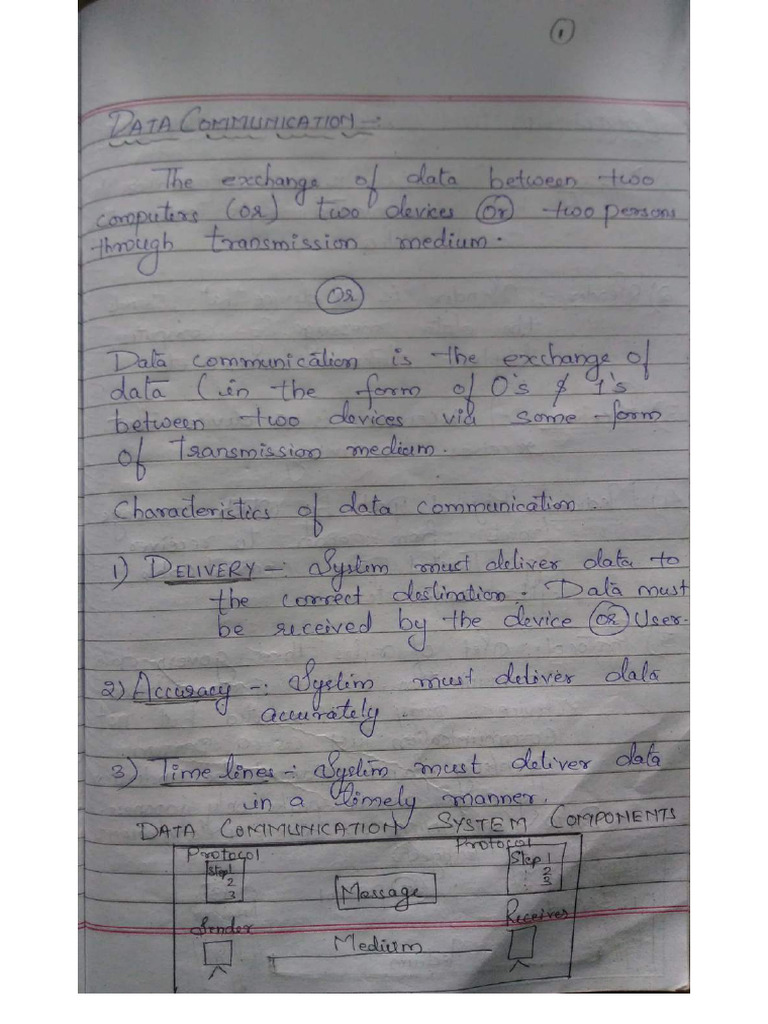 1
DATA COMMUNICATION -:
The exchange of data between two
computers (or) two devices or two persons
through transmission medium.
Or
Data communication is the exchange of
data (in the form of 0's & 1's
between two devices via some form
of Transmission medium.
Characteristics of data communication.
1) DELIVERY -: System must deliver data to
the correct destination. Data must
be received by the device or User.
2) Accuracy -: System must deliver data
accurately.
3) Time lines -: System must deliver data
in a timely manner.
DATA COMMUNICATION SYSTEM COMPONENTS
Protocol Protocol
Step 1 Step 1
2 2
3 3
Message
Sender Receiver
Medium